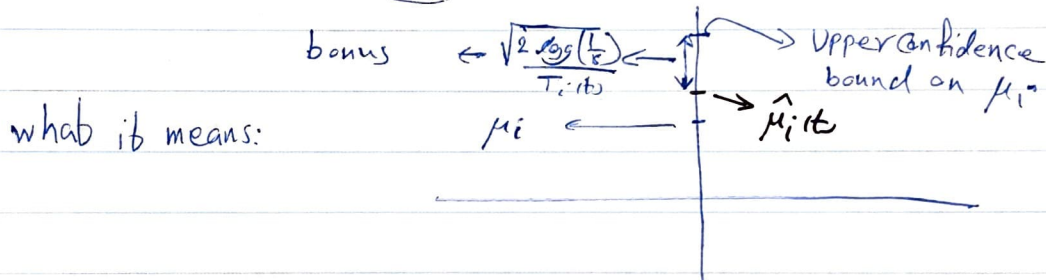 bonus ← √(2 log(1/δ) / Tᵢ(t)) ← → Upper confidence
bound on μᵢ
→ μ̂ᵢ(t)
what it means: μi ←